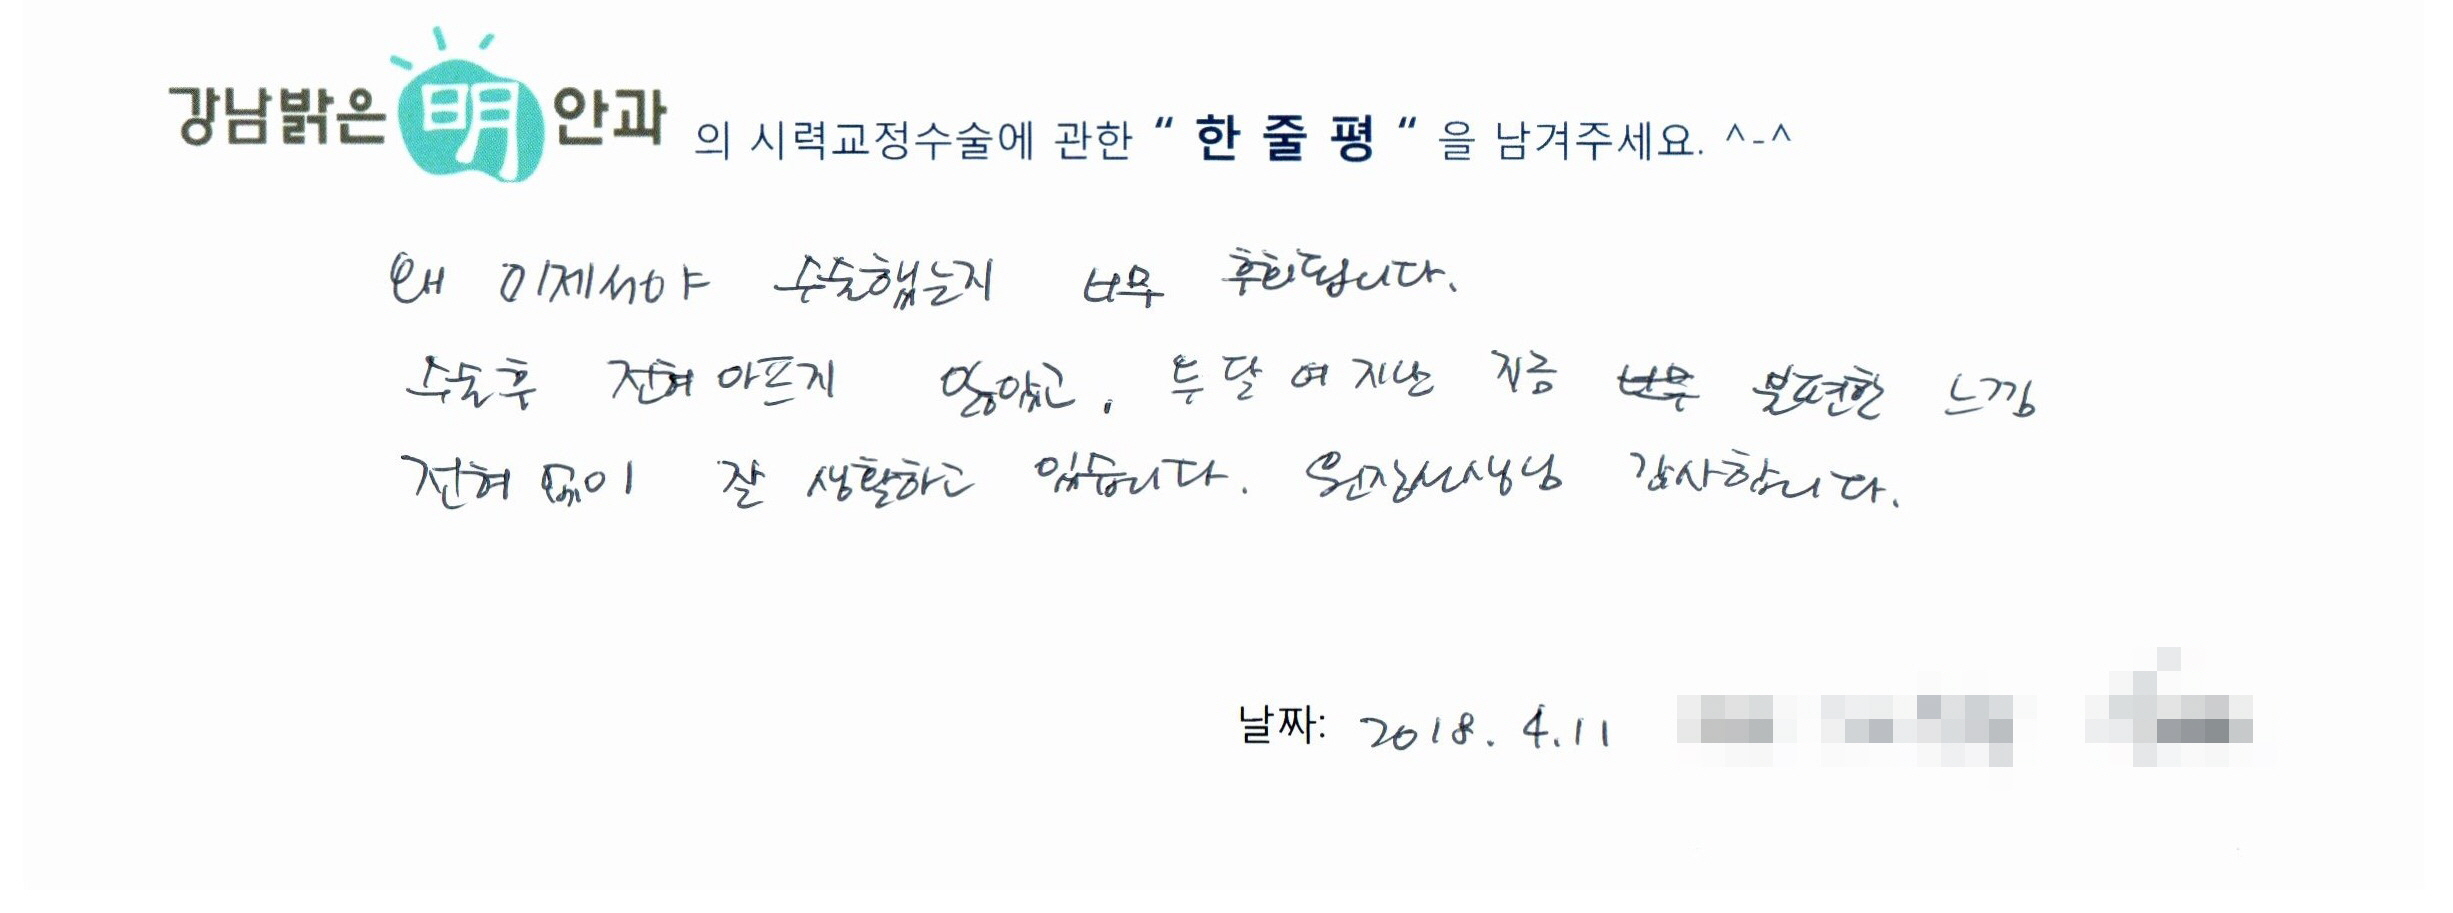 강남밝은明안과 의 시력교정수술에 관한 “ 한 줄 평 “ 을 남겨주세요. ^-^
왜 이제서야 수술했는지 너무 후회됩니다.
수술후 전혀 아프지 않았고, 두 달 여 지난 지금 불편한 느낌
전혀 없이 잘 생활하고 있습니다. 원장선생님 감사합니다.
날짜: 2018. 4. 11